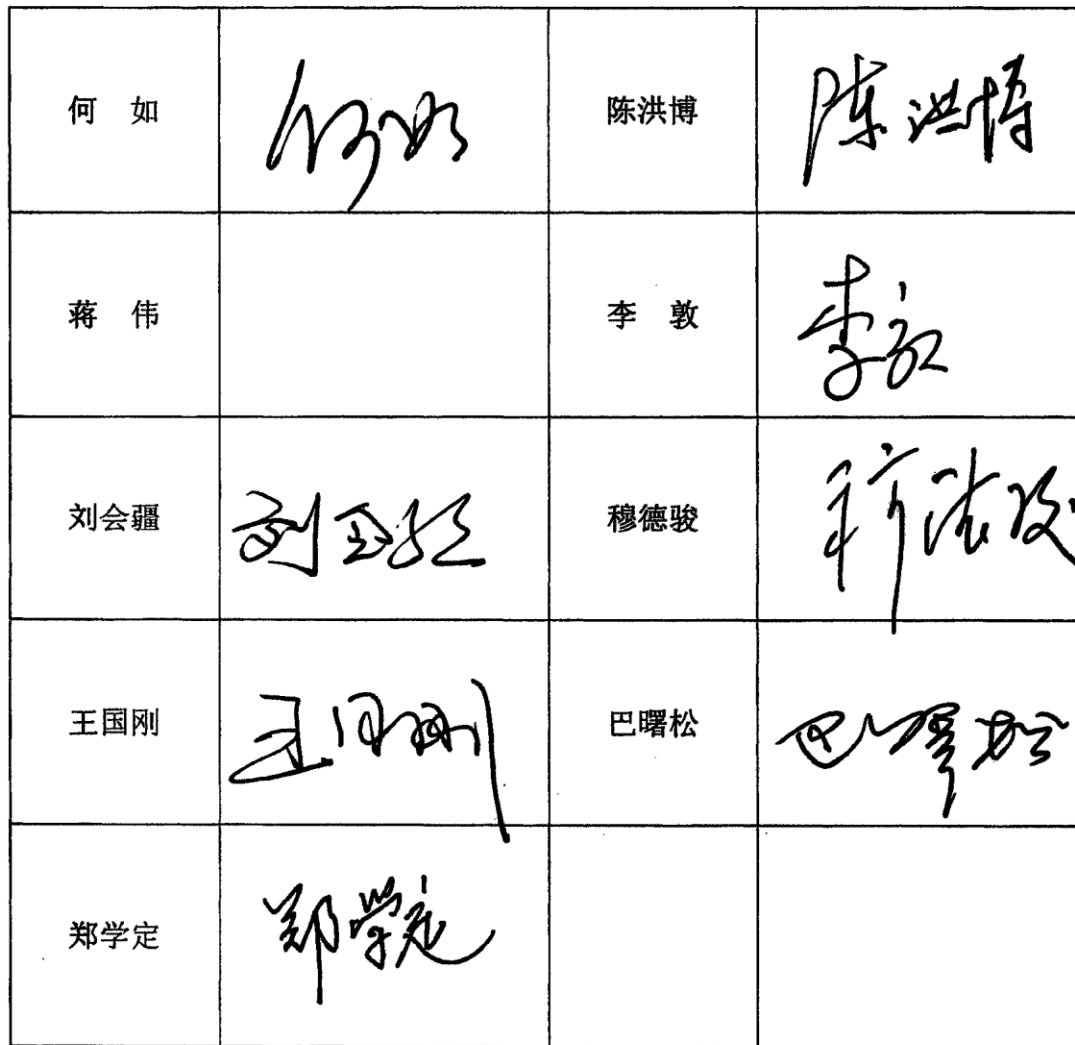 何 如 何如 陈洪博 陈洪博
蒋 伟 李 敦 李敦
刘会疆 刘会疆 穆德骏 穆德骏
王国刚 王国刚 巴曙松 巴曙松
郑学定 郑学定